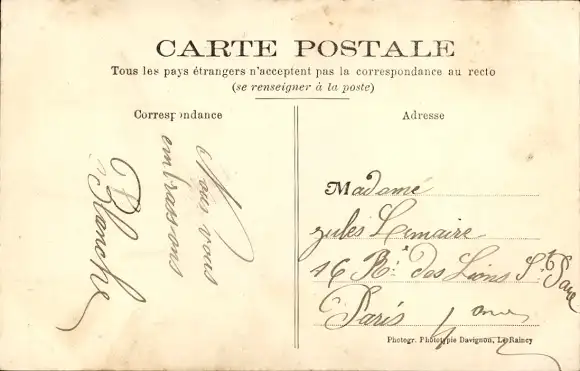 CARTE POSTALE
Tous les pays étrangers n'acceptent pas la correspondance au recto
(se renseigner à la poste)
Correspondance
Nous vous
embrassons
Blanche
Adresse
Madame
Jules Lemaire
16 R. des Lions St Paul
Paris 4eme
Photogr. Phototypie Davignon, Le Raincy